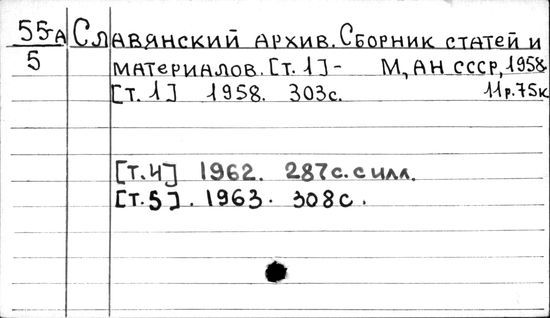 55-А Славянский архив. Сборник статей и
5 материалов. [т. 1] - М, АН СССР, 1958
[т. 1] 1958. 303с. 11р.75к
[т.4] 1962. 287с. с илл.
[т.5]. 1963. 308с.